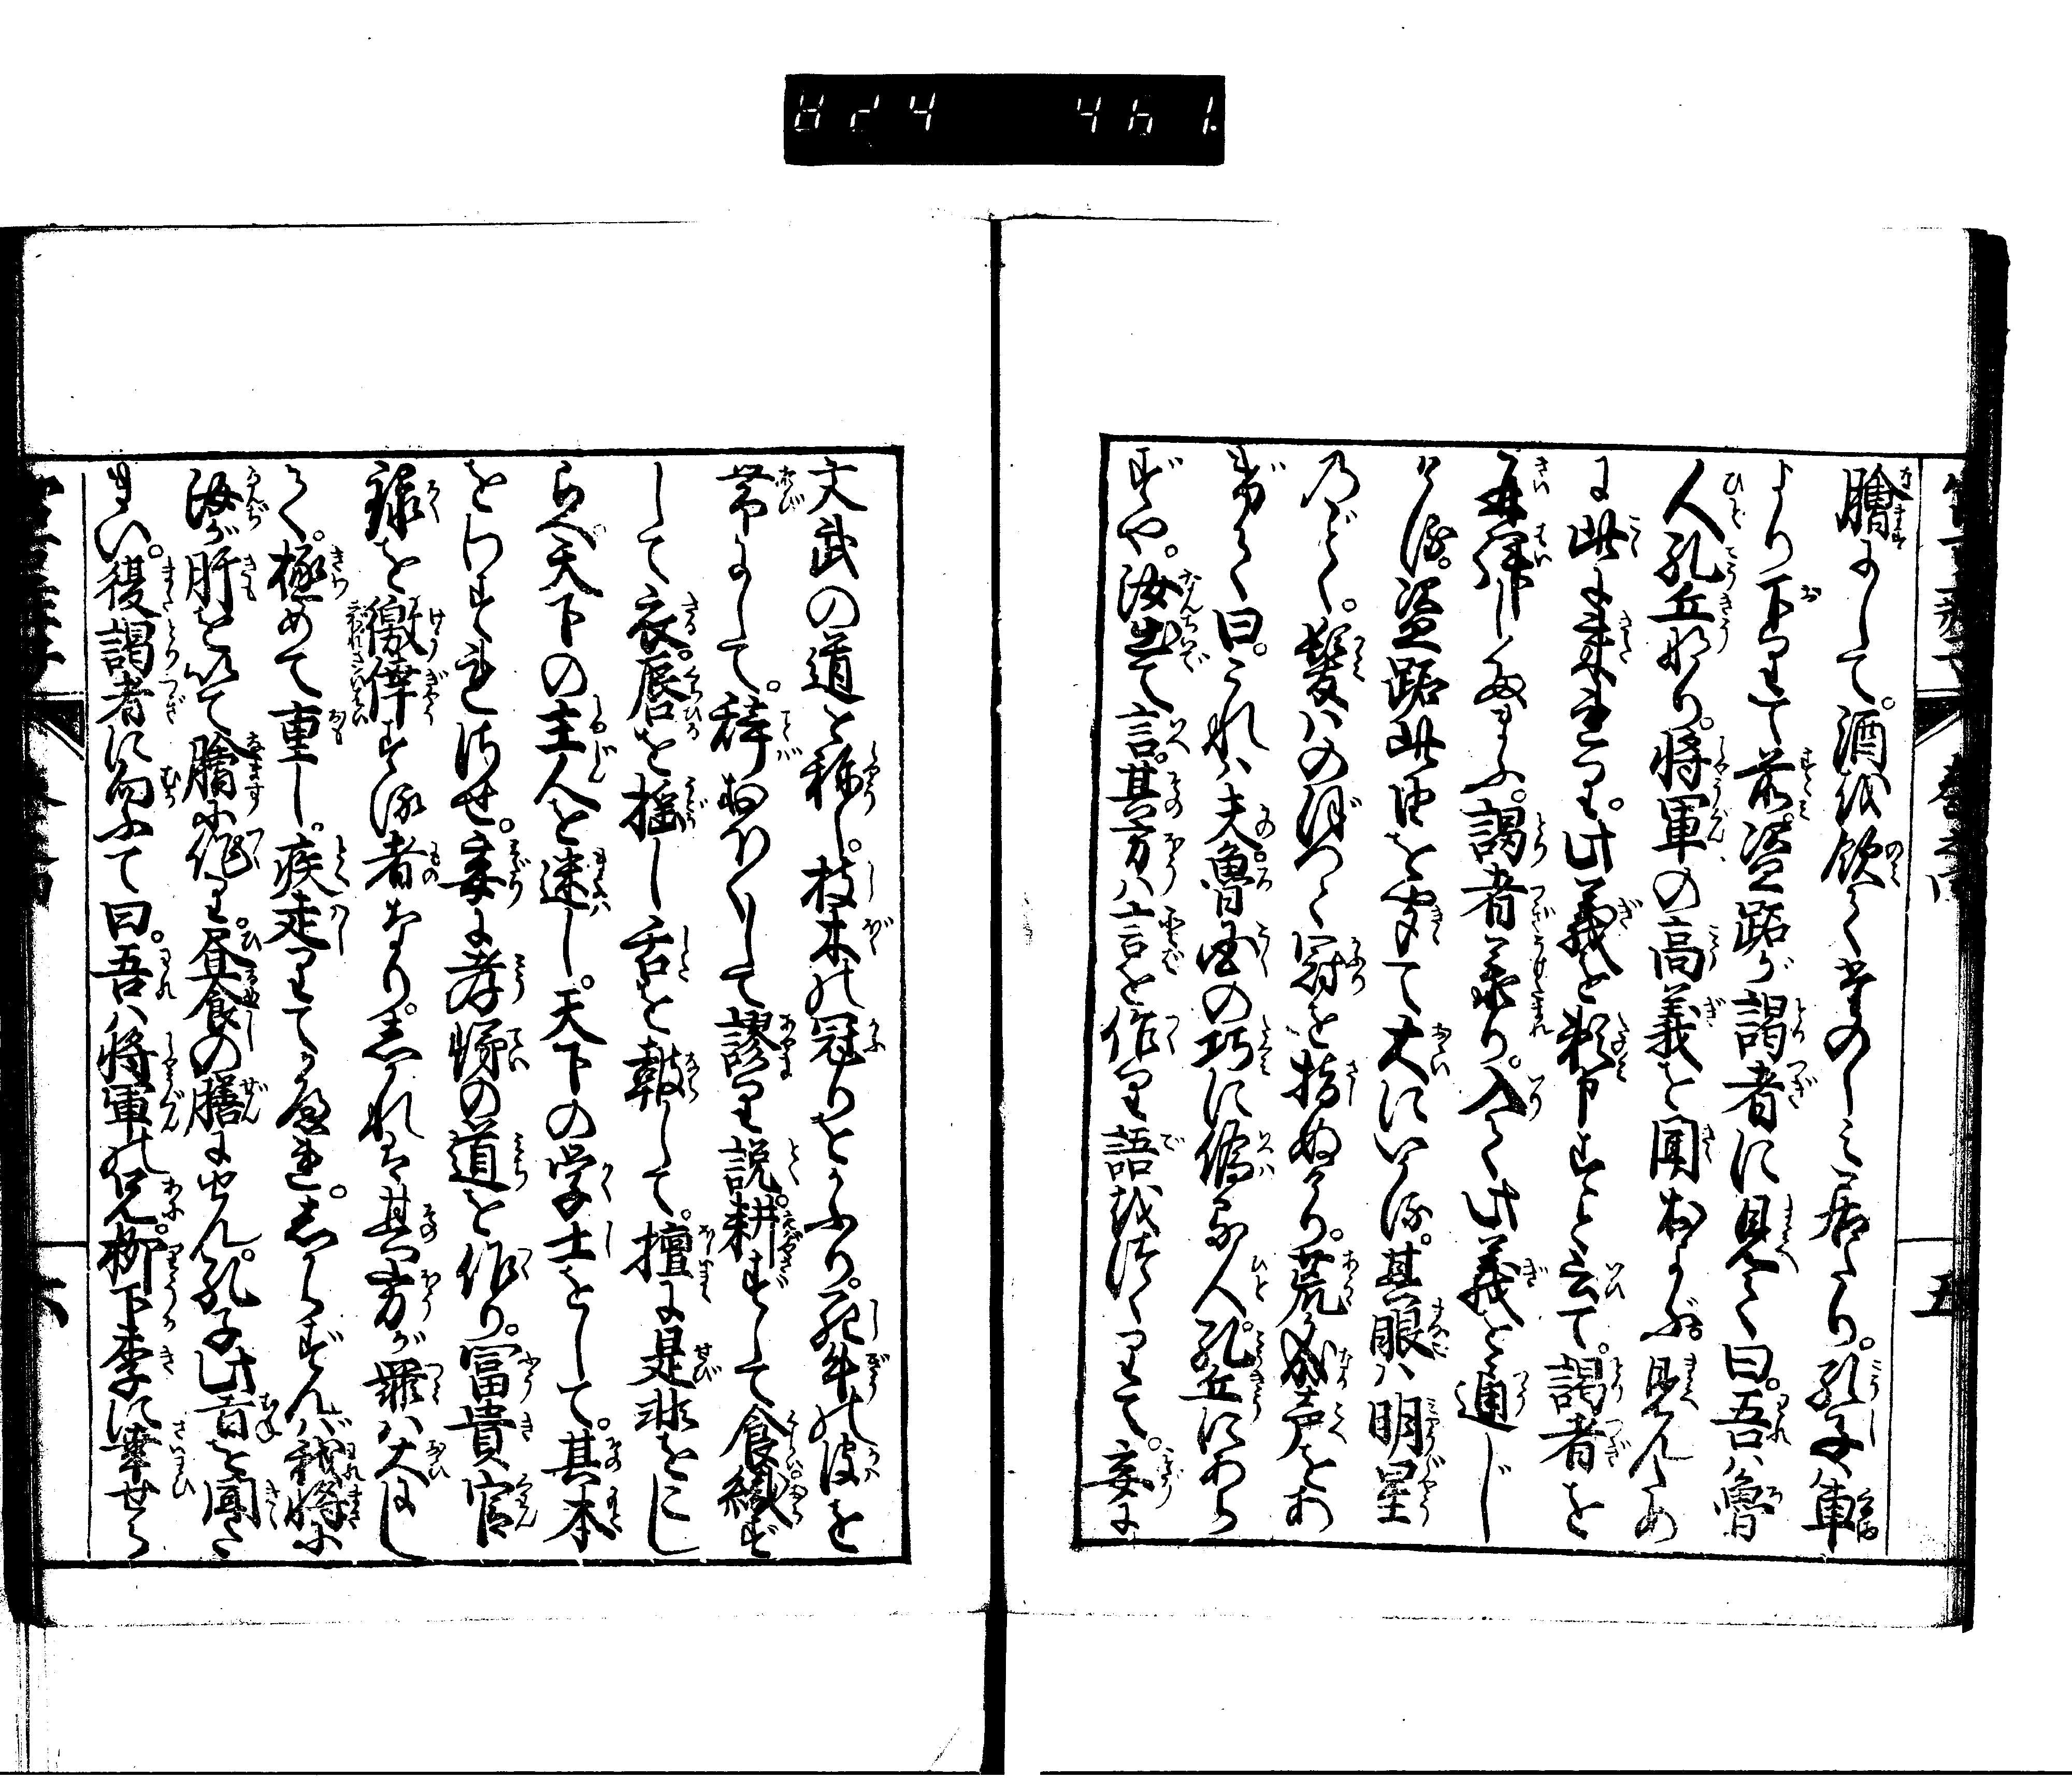 824 461.
五
膾にして。酒を飲てたのしミ居たり。孔子車
より下りて前ミ盗跖が謁者に見えて曰。吾ハ魯
人孔丘なり。将軍の高義を聞およぶ。見えんため
に此に来れり。此義を頼申すと云て。謁者を
再拝し給ふ。謁者承り。入て此義を通じ
ける。盗跖此由を聞て大にいかる。其眼ハ明星
のごとく。髪ハのぼつて冠を指ぬけり。荒声をあ
げて曰。これハ夫魯国の巧に偽る人。孔丘にあら
ずや。汝出て言へ。其方ハ言を作り語をつくりて。妄に
文武の道と称し。枝木の冠りをかふり。死牛の皮を
帯にして。辞おほくして謬り説。耕ずして食。織ず
して衣。唇を揺し舌を鼓して。擅に是非をこし
らへ天下の主人を迷し。天下の学士をして。其本
をわすれさせ。妄に孝悌の道を作り。冨貴官
禄を僥倖する者なり。しかれば其方が罪ハ大にし
て。極めて重し。疾走りてかへれ。しからずんバ我将に
汝が肝を以て膾に作り。昼食の膳にせん。孔子此言を聞た
まい。復謁者に向ふて曰。吾ハ将軍の兄。柳下季に幸せら
六